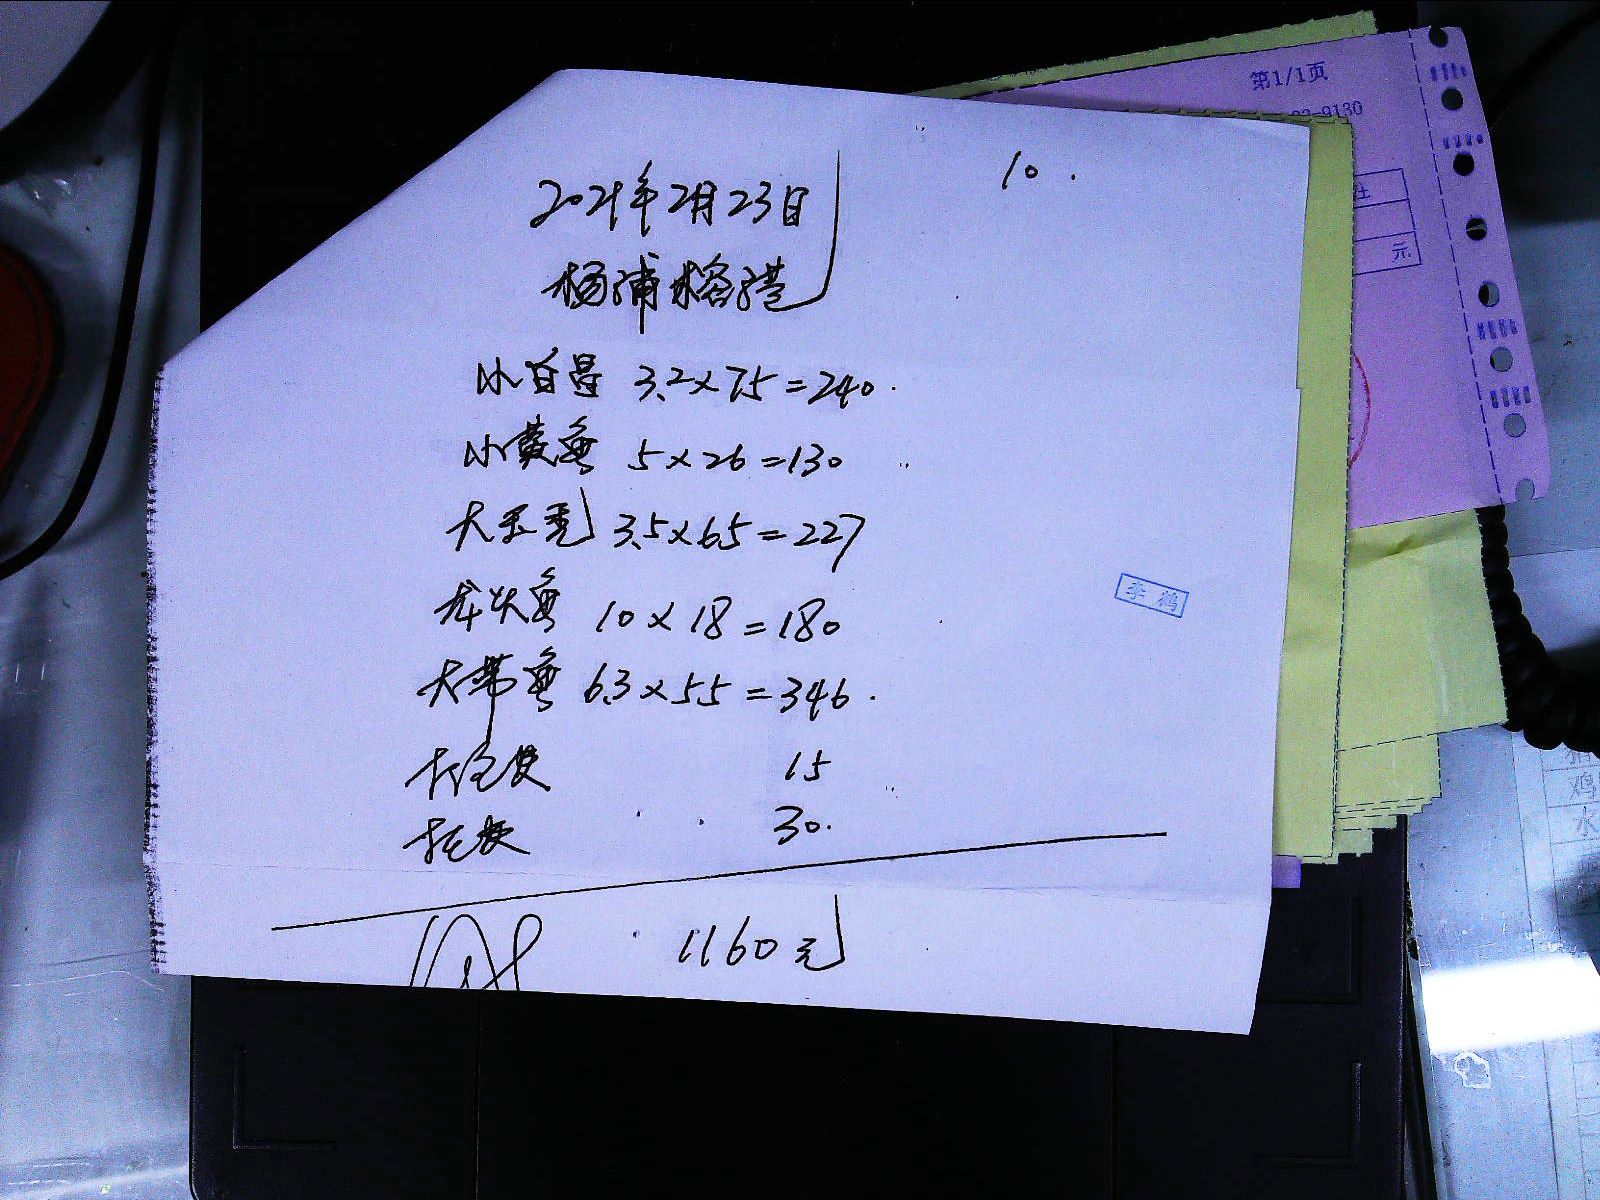 10.
2021年2月23日
杨浦榕港
小白昌 3.2×75=240.
小黄鱼 5×26=130
大玉秃 3.5×65=227
龙头鱼 10×18=180
大带鱼 6.3×55=346.
15
30.
1160元
李鹤
第1/1页
-9130
元
鸡
水